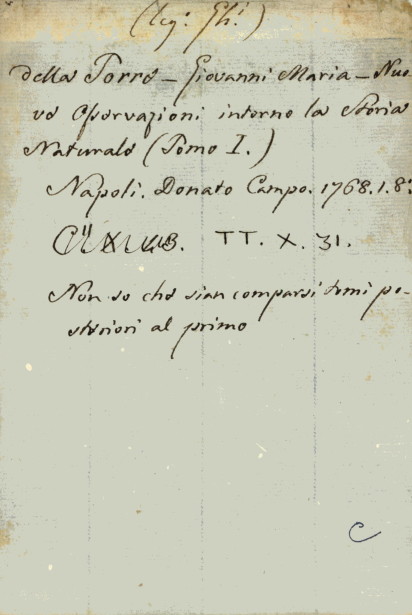 (leg: Gh:)
della Torre - Giovanni Maria - Nuo-
ve Osservazioni intorno la Storia
Naturale (Tomo I.)
Napoli. Donato Campo. 1768. 1. 8:
TT. X. 31.
Non so che sian comparsi tomi po-
steriori al primo
C